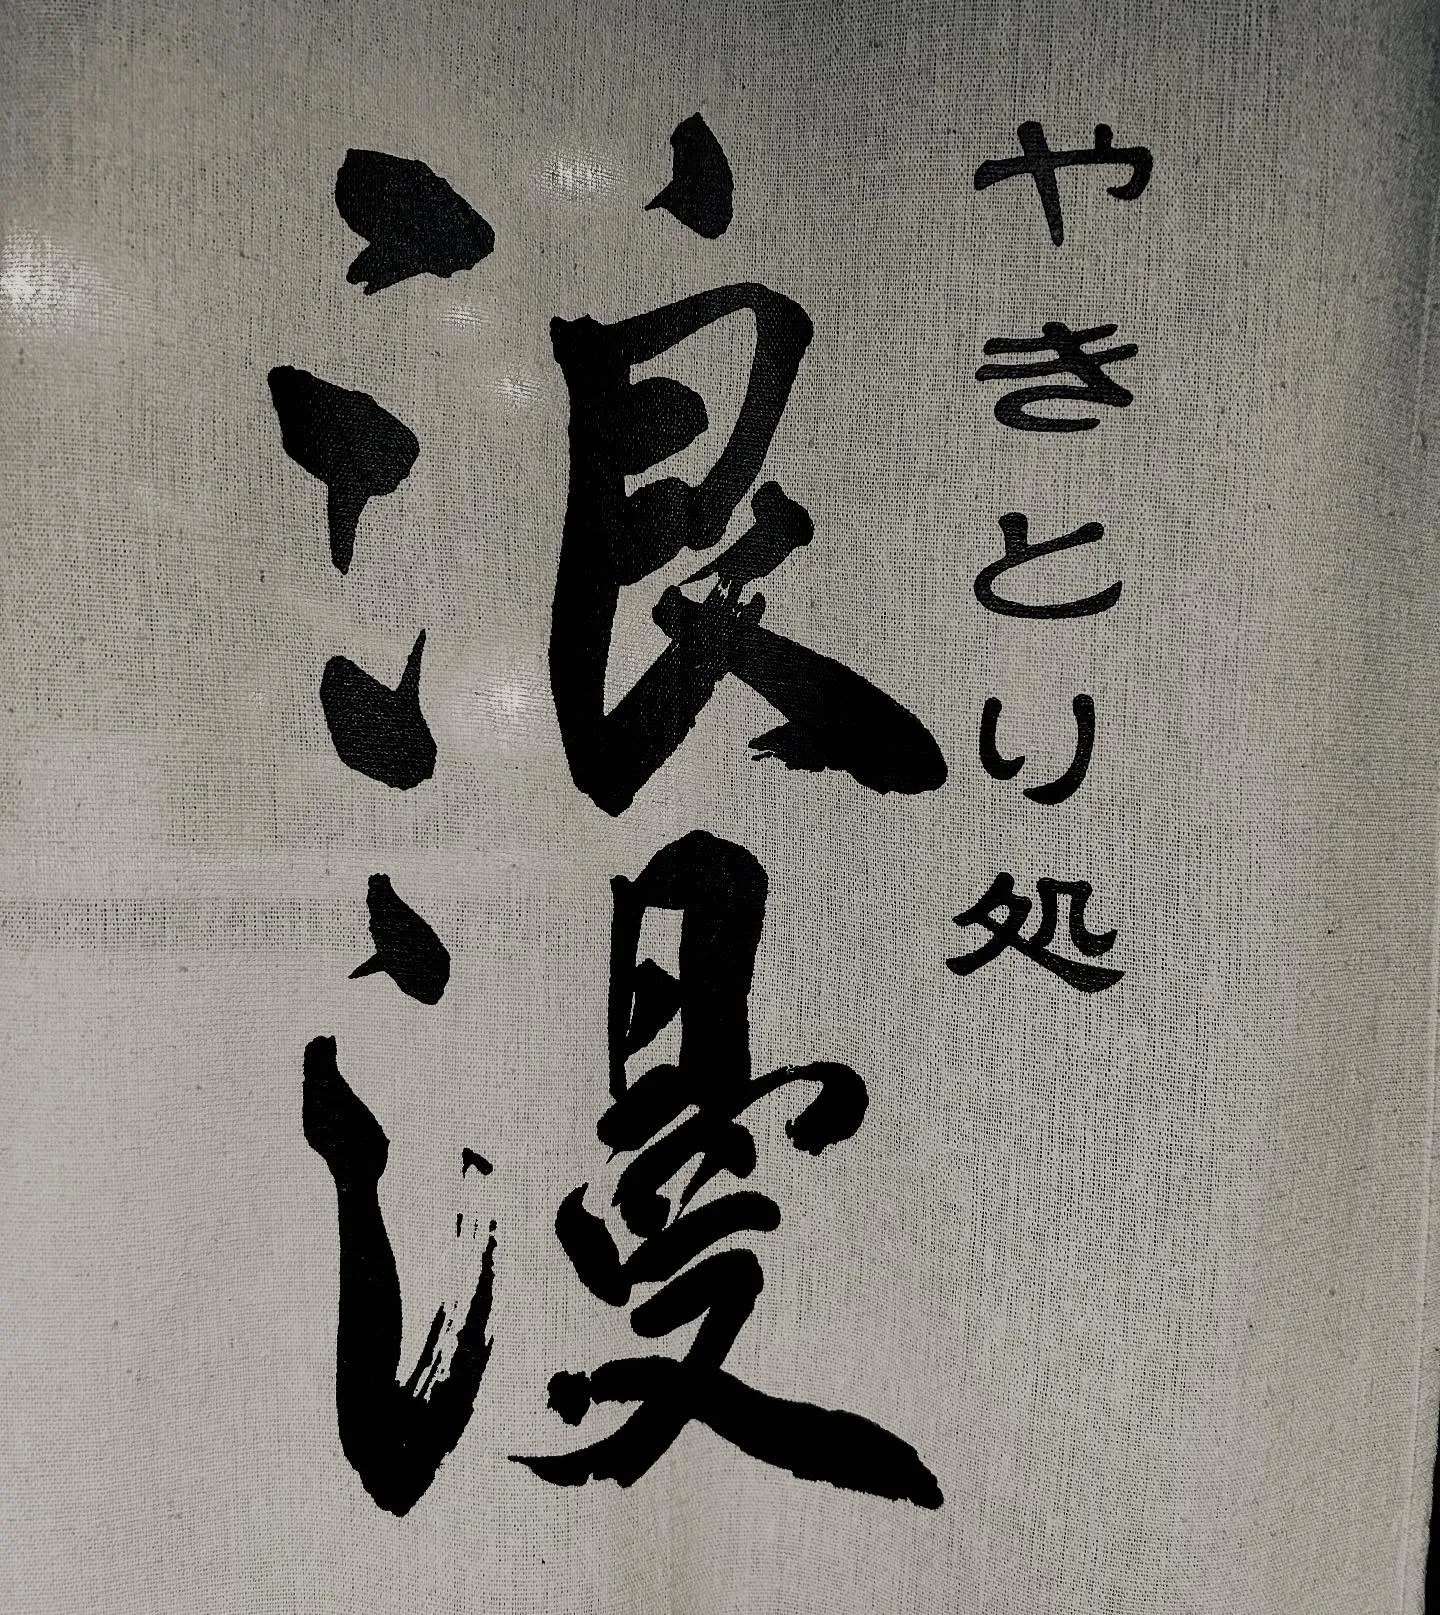 やきとり処
浪漫